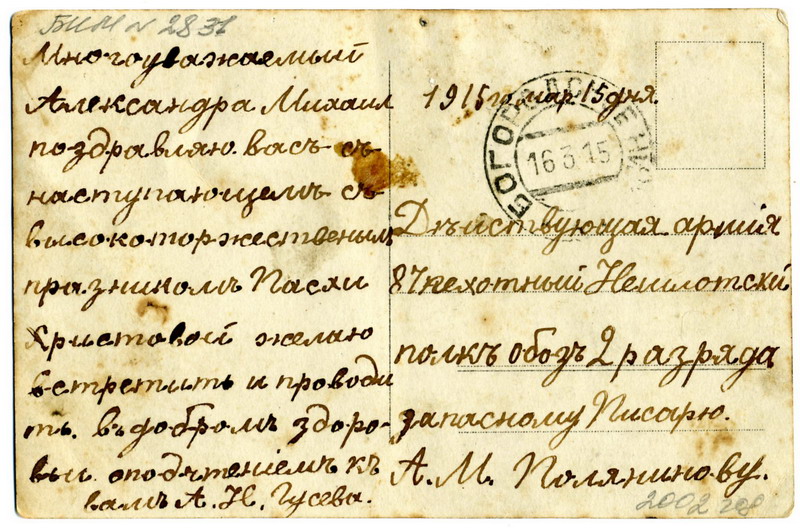 БКМ № 2831
Многоуважаемый
Александра Михаил
поздравляю васъ съ
наступающемъ съ
высокоторжественымъ
празникомъ Пасхи
Христовой желаю
встретить и проводи
ть. въ добромъ здоро-
вьи споčтениемъ къ
вамъ А. Н. Гусева.
1915 го мар 15 дня.
БОГОРОДСК
16 3 15
Дѣйствующая армія
87 пехотный Неишлотскій
полкъ обозъ 2 разряда
запасному Писарю.
А. М. Поляниновy.
2002 год